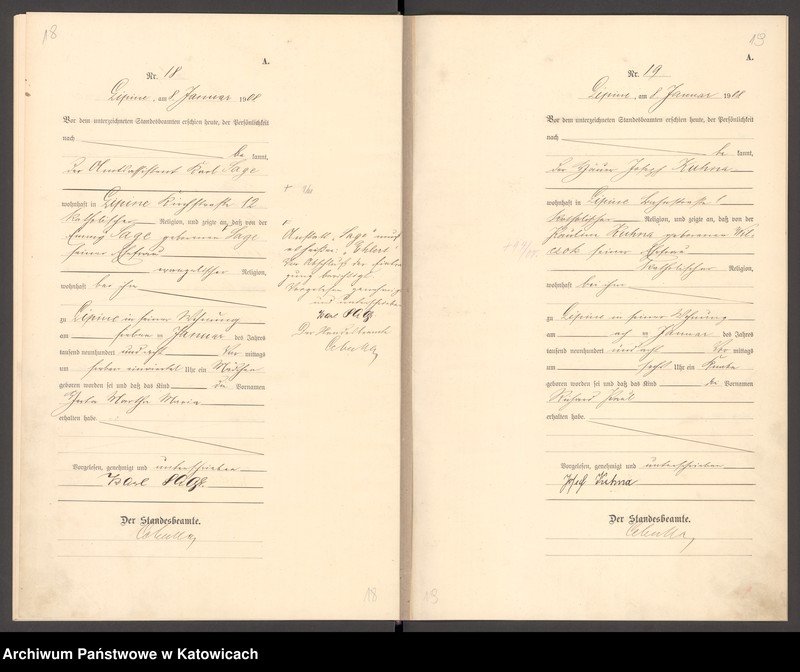 18
A.
Nr. 18
Lipine, am 8 Januar 1908
Vor dem unterzeichneten Standesbeamten erschien heute, der Persönlichkeit
nach
be kannt,
der Amtsassistent Karl Sage
wohnhaft in Lipine Kirchstraße 12
katholischer Religion, und zeigte an, daß von der
Sage geborenen Sage
seiner Ehefrau
evangelischer Religion,
wohnhaft bei ihm
zu Lipine in seiner Wohnung
am sieben ten Januar des Jahres
tausend neunhundert und acht Vor mittags
um sieben einviertel Uhr ein Mädchen
geboren worden sei und daß das Kind die Vornamen
Martha Maria
erhalten habe.
Vorgelesen, genehmigt und unterschrieben
Karl Sage.
Der Standesbeamte.
Cebulla
Anstatt "Sage" muß
es heißen
Vorgelesen genehmigt
und unterschrieben
Karl Sage
Der Standesbeamte
Cebulla
18
19
A.
Nr. 19
Lipine, am 8 Januar 1908
Vor dem unterzeichneten Standesbeamten erschien heute, der Persönlichkeit
nach
be kannt,
der Häuer Josef Kuhna
wohnhaft in Lipine
katholischer Religion, und zeigte an, daß von der
Paulina Kuhna geborenen
seiner Ehefrau
katholischer Religion,
wohnhaft bei ihm
zu Lipine in seiner Wohnung
am acht ten Januar des Jahres
tausend neunhundert und acht Vor mittags
um sechs Uhr ein Knabe
geboren worden sei und daß das Kind die Vornamen
Richard Paul
erhalten habe.
Vorgelesen, genehmigt und unterschrieben
Josef Kuhna
Der Standesbeamte.
Cebulla
19
Archiwum Państwowe w Katowicach